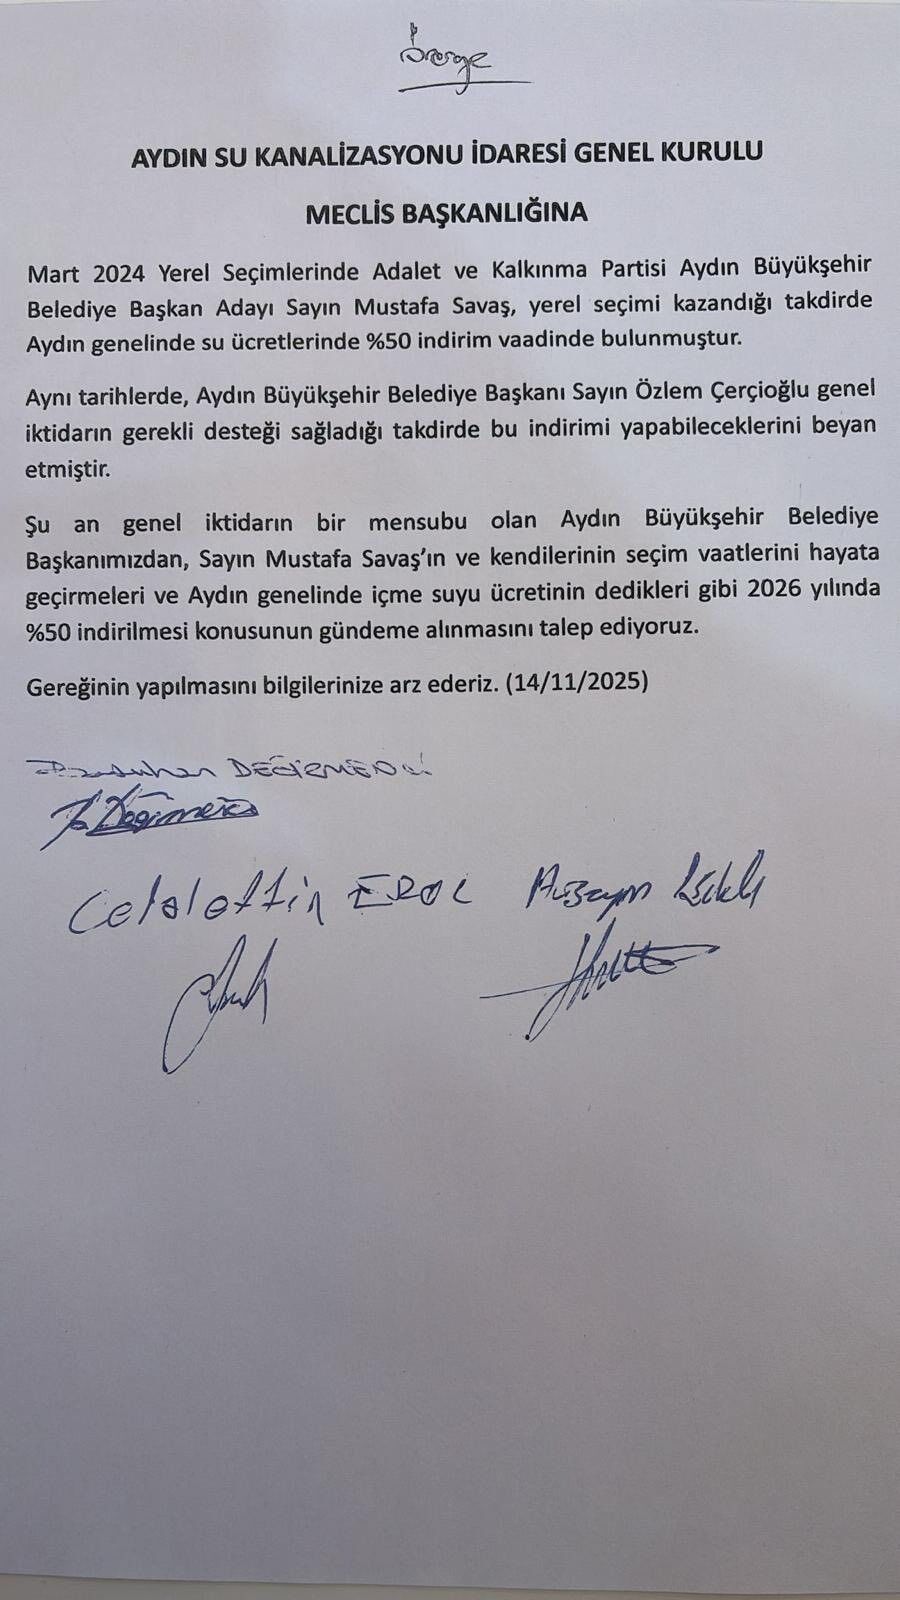 Önerge
AYDIN SU KANALİZASYONU İDARESİ GENEL KURULU
MECLİS BAŞKANLIĞINA
Mart 2024 Yerel Seçimlerinde Adalet ve Kalkınma Partisi Aydın Büyükşehir
Belediye Başkan Adayı Sayın Mustafa Savaş, yerel seçimi kazandığı takdirde
Aydın genelinde su ücretlerinde %50 indirim vaadinde bulunmuştur.
Aynı tarihlerde, Aydın Büyükşehir Belediye Başkanı Sayın Özlem Çerçioğlu genel
iktidarın gerekli desteği sağladığı takdirde bu indirimi yapabileceklerini beyan
etmiştir.
Şu an genel iktidarın bir mensubu olan Aydın Büyükşehir Belediye
Başkanımızdan, Sayın Mustafa Savaş’ın ve kendilerinin seçim vaatlerini hayata
geçirmeleri ve Aydın genelinde içme suyu ücretinin dedikleri gibi 2026 yılında
%50 indirilmesi konusunun gündeme alınmasını talep ediyoruz.
Gereğinin yapılmasını bilgilerinize arz ederiz. (14/11/2025)
DEĞİRMENCİ
Celalettin EROL Hüseyin